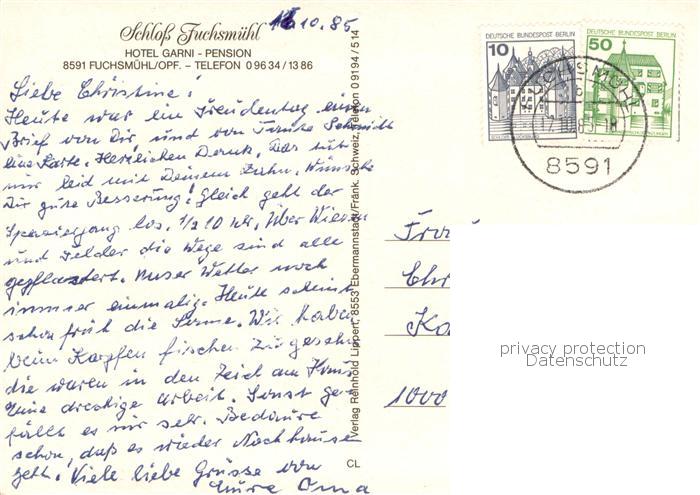 Schloß Fuchsmühl
HOTEL GARNI - PENSION
8591 FUCHSMÜHL/OPF. - TELEFON 0 96 34 / 13 86
10.85
Liebe Christine!
Heute war ein Freudentag einen
Brief von Dir, und von Frau Schmidt
eine Karte. Herzlichen Dank. Das tut
mir leid mit Deinem Zahn. Wünsche
Dir gute Besserung! Gleich geht der
Spaziergang los. 1/2 10 Uhr. Über Wiesen
und Felder die Wege sind alle
gepflastert. Unser Wetter noch
immer einmalig. Heute scheint
schon früh die Sonne. Wir haben
beim Karpfen fischen zugesehn
die waren in den Teich am Haus
Eine dreckige Arbeit. Sonst ge-
fällt es mir sehr. Bedaure
schon, daß es wieder Nachhause
geht. Viele liebe Grüsse von
Eure Oma
Verlag Reinhold Lippert, 8553 Ebermannstadt/Fränk. Schweiz, Telefon 0 91 94 / 5 14
CL
DEUTSCHE BUNDESPOST BERLIN
10
DEUTSCHE BUNDESPOST BERLIN
50
8591
Chr
1000
privacy protection
Datenschutz